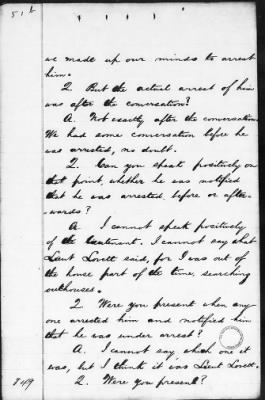 51 b
we made up our minds to arrest
him.
Q. But the actual arrest of him
was after the conversation?
A. Not exactly after the conversation.
We had some conversation before he
was arrested, no doubt.
Q. Can you speak positively on
that point, whether he was notified
that he was arrested, before or after-
wards?
A. I cannot speak positively
of the Lieutenant. I cannot say what
Lieut Lovett said, for I was out of
the house part of the time, searching
outhouses.
Q. Were you present when any-
one arrested him and notified him
that he was under arrest?
A. I cannot say which one it
was, but I think it was Lieut Lovett.
849
Q. Were you present?